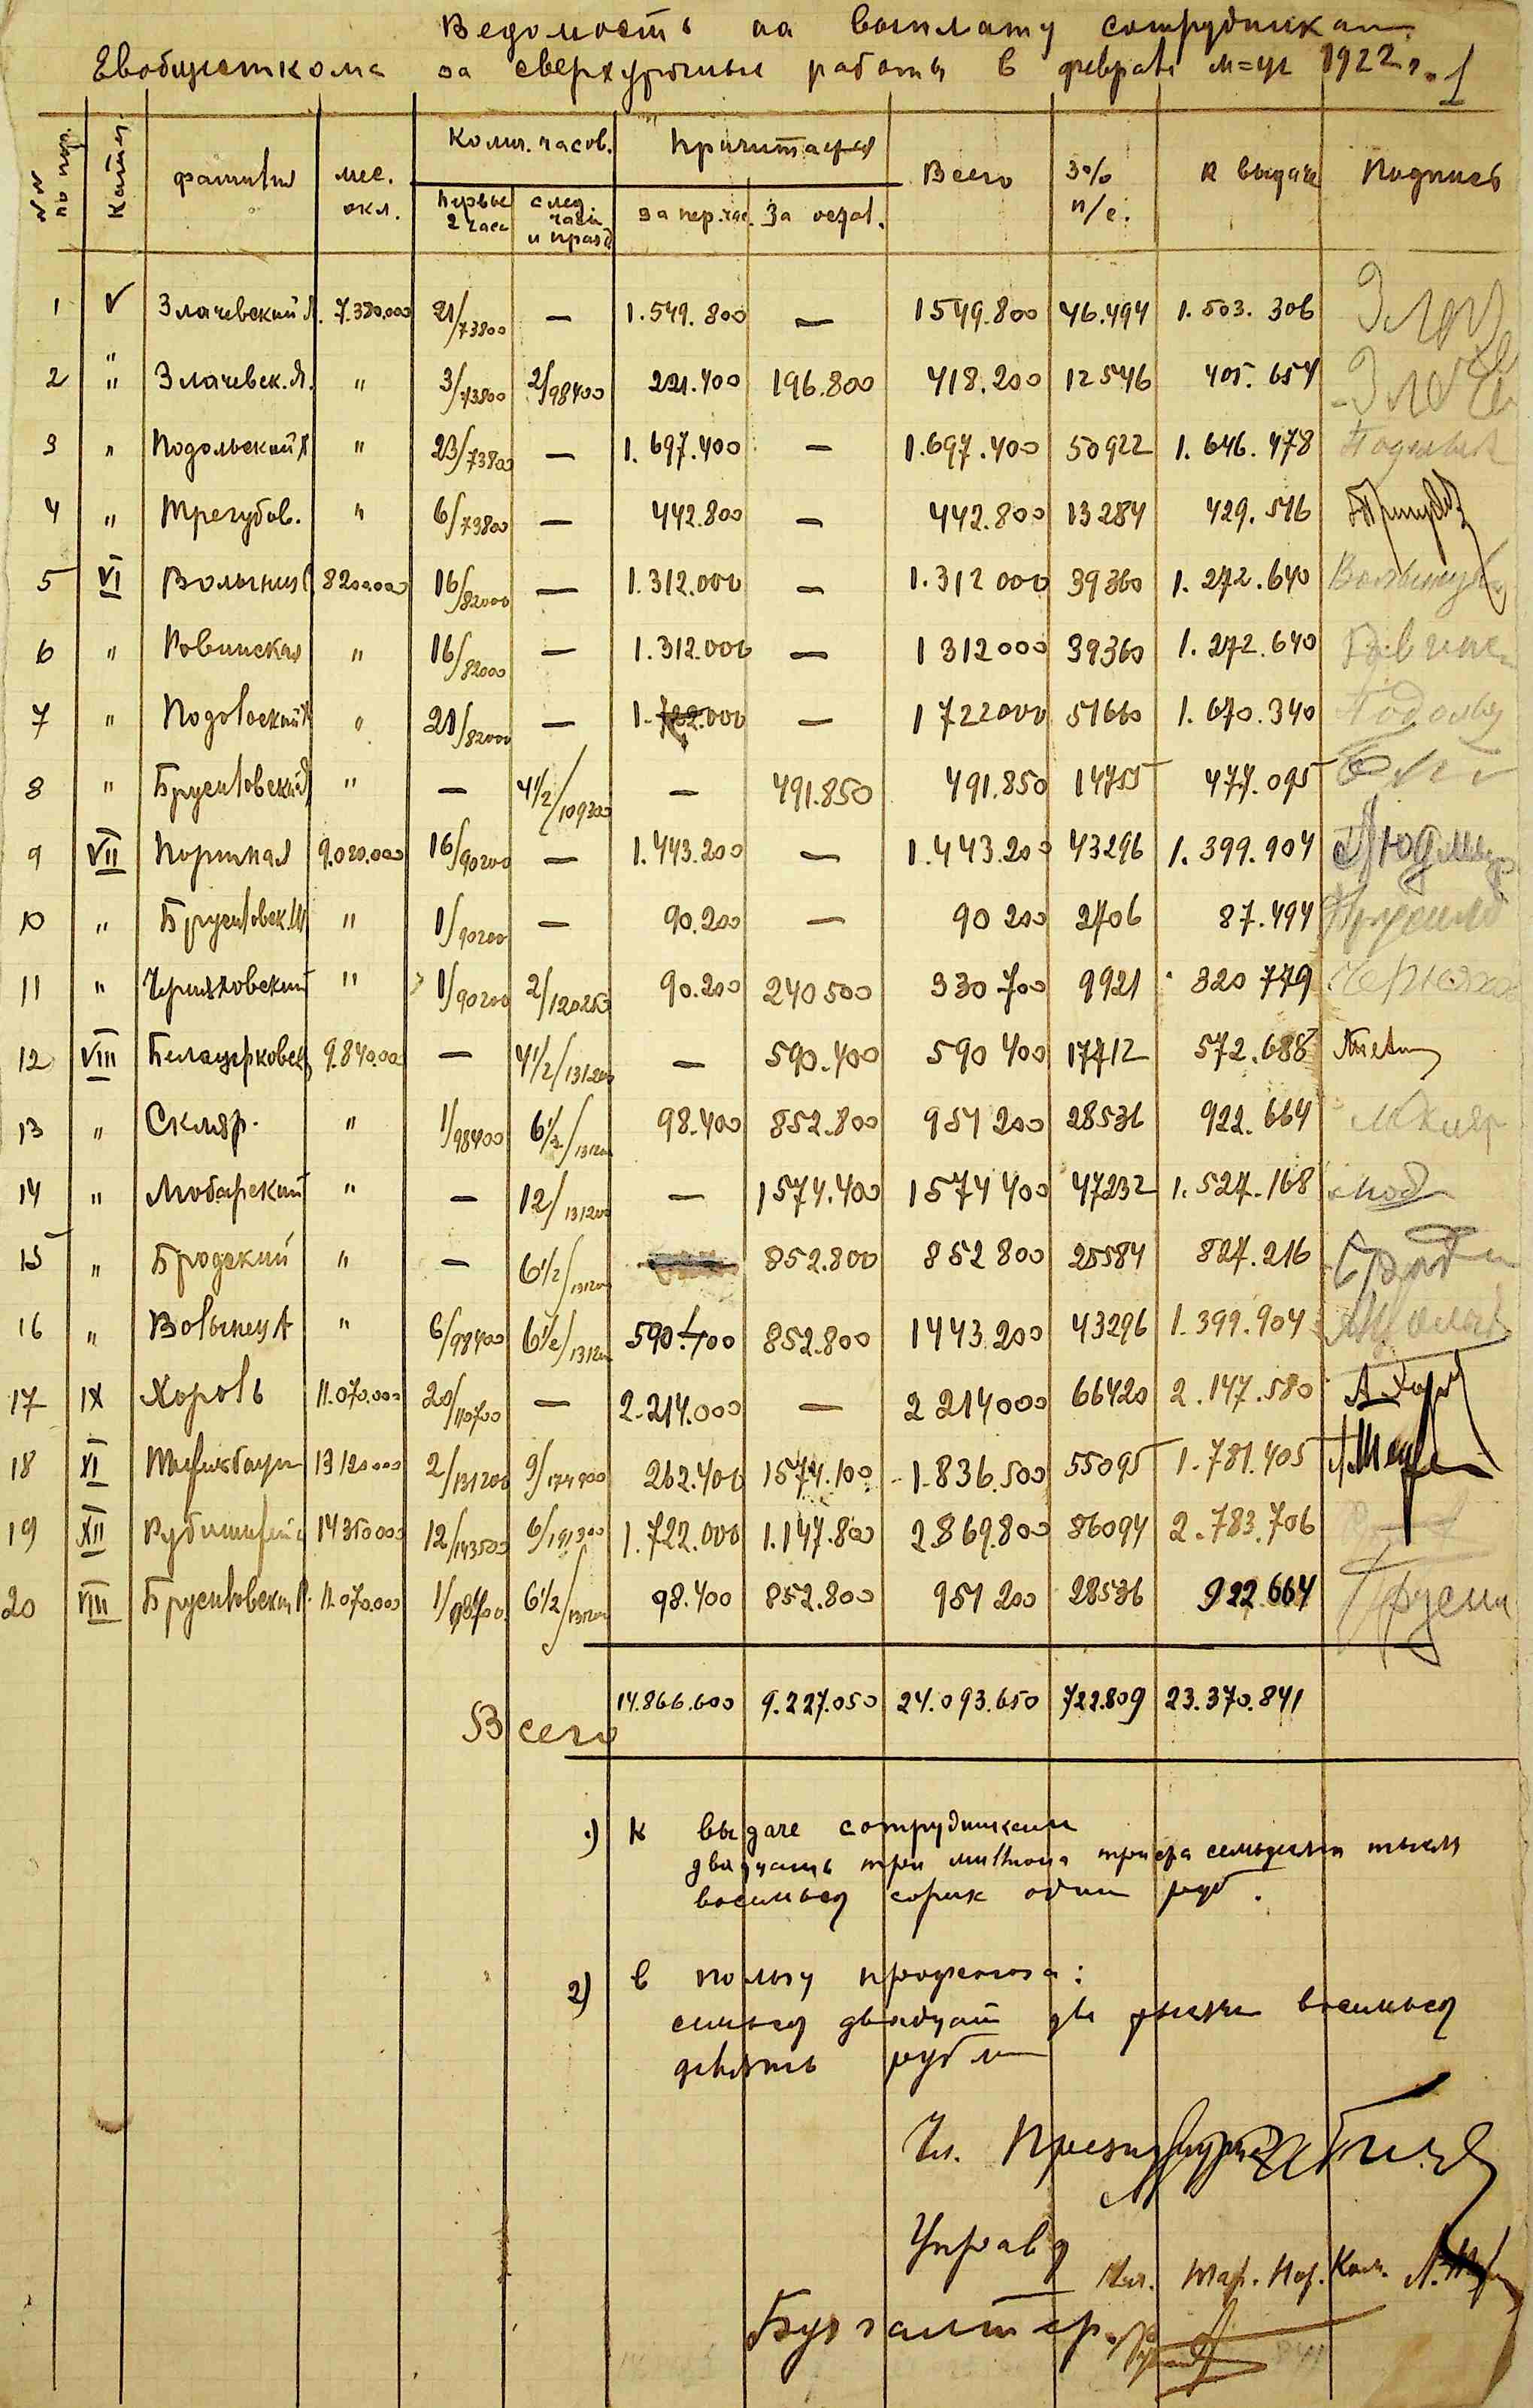 Ведомость на выплату сотрудникам
Евобщесткома за сверхурочные работы в феврале м=це 1922 г. 1
№№ по пор. Катег. фамилия мес. окл. Колич. часов. Причитается Всего 3% п/с. К выдаче Подпись
первые 2 часа след. часы и празд за пер. час. За остал.
1 V Злочевский Л. 7.380.000 21/73800 — 1.549.800 — 1549.800 46.494 1.503.306
2 " Злочевск. Я. " 3/73800 2/98400 221.400 196.800 418.200 12546 405.654
3 " Подольский " 23/73800 — 1.697.400 — 1.697.400 50922 1.646.478
4 " Трегубов. " 6/73800 — 442.800 — 442.800 13284 429.516
5 VI Волынец 8200.000 16/82000 — 1.312.000 — 1.312000 39360 1.272.640
6 " Ровинская " 16/82000 — 1.312.000 — 1312000 39360 1.272.640
7 " Подольский " 21/82000 — 1.722.000 — 1722000 51660 1.670.340
8 " Брусиловский " — 4 1/2/109300 — 491.850 491.850 14755 477.095
9 VII Портная 9.020.000 16/90200 — 1.443.200 — 1.443.200 43296 1.399.904
10 " Брусиловск. " 1/90200 — 90.200 — 90200 2706 87.494
11 " Черняховский " 1/90200 2/120250 90.200 240500 330700 9921 320779
12 VIII Белацерковск 9.840.00 — 4 1/2/131200 — 590.400 590400 17712 572.688
13 " Скляр. " 1/98400 6 1/2/131200 98.400 852.800 951200 28536 922.664
14 " Любарский " — 12/131200 — 1574.400 1574400 47232 1.527.168
15 " Бродский " — 6 1/2/131200 852.800 852800 25584 827.216
16 " Волынец А " 6/98400 6 1/2/131200 590.400 852.800 1443.200 43296 1.399.904
17 IX Хороль 11.070.000 20/110700 — 2.214.000 — 2214000 66420 2.147.580
18 XI 13120000 2/131200 9/174900 262.400 1574.100 1.836.500 55095 1.781.405
19 XII 14350000 12/143500 6/191300 1.722.000 1.147.800 2869.800 86094 2.783.706
20 VIII Брусиловский 11.070.000 1/98400 6 1/2/131200 98.400 852.800 951200 28536 922.664
Всего 14.866.600 9.227.050 24.093.650 722.809 23.370.841
1) К выдаче сотрудникам
двадцать три миллиона триста семьдесят тысяч
восемьсот сорок один руб.
2) в пользу профсоюза:
семьсот двадцать две тысячи восемьсот
девять рубл
Чл. Президиума
Управд
Чл. Тар. Нор. Ком.
Бухгалтер.